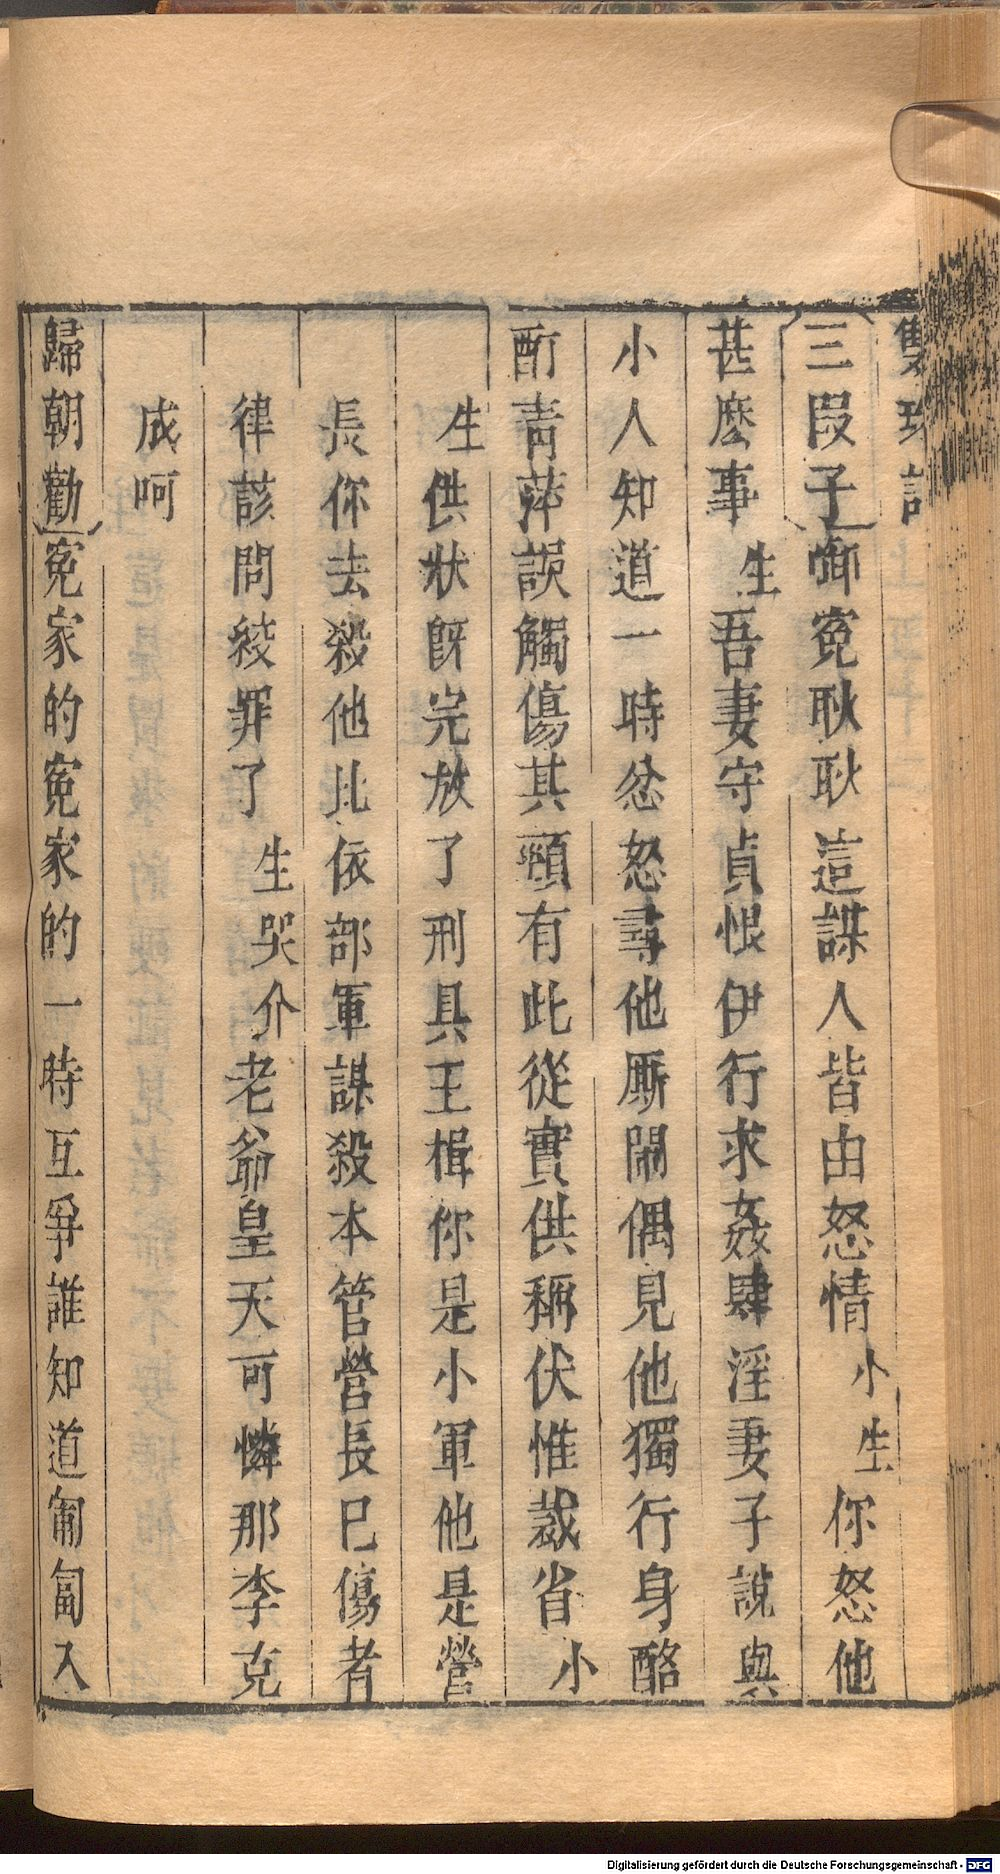 雙珠記
三段子啣寃耿耿這謀人皆由怒情小生你怒他
甚麽事生吾妻守貞恨伊行求姦肆淫妻子說與
小人知道一時忿怒尋他厮鬧偶見他獨行身酩
酊青萍誤觸傷其頸有此從實供稱伏惟裁省小
生供狀旣完放了刑具王楫你是小軍他是營
長你去殺他比依部軍謀殺本管營長巳傷者
律該問絞罪了生哭介老爺皇天可憐那李克
成呵
歸朝勸寃家的寃家的一時互爭誰知道匍匐入
Digitalisierung gefördert durch die Deutsche Forschungsgemeinschaft - DFG